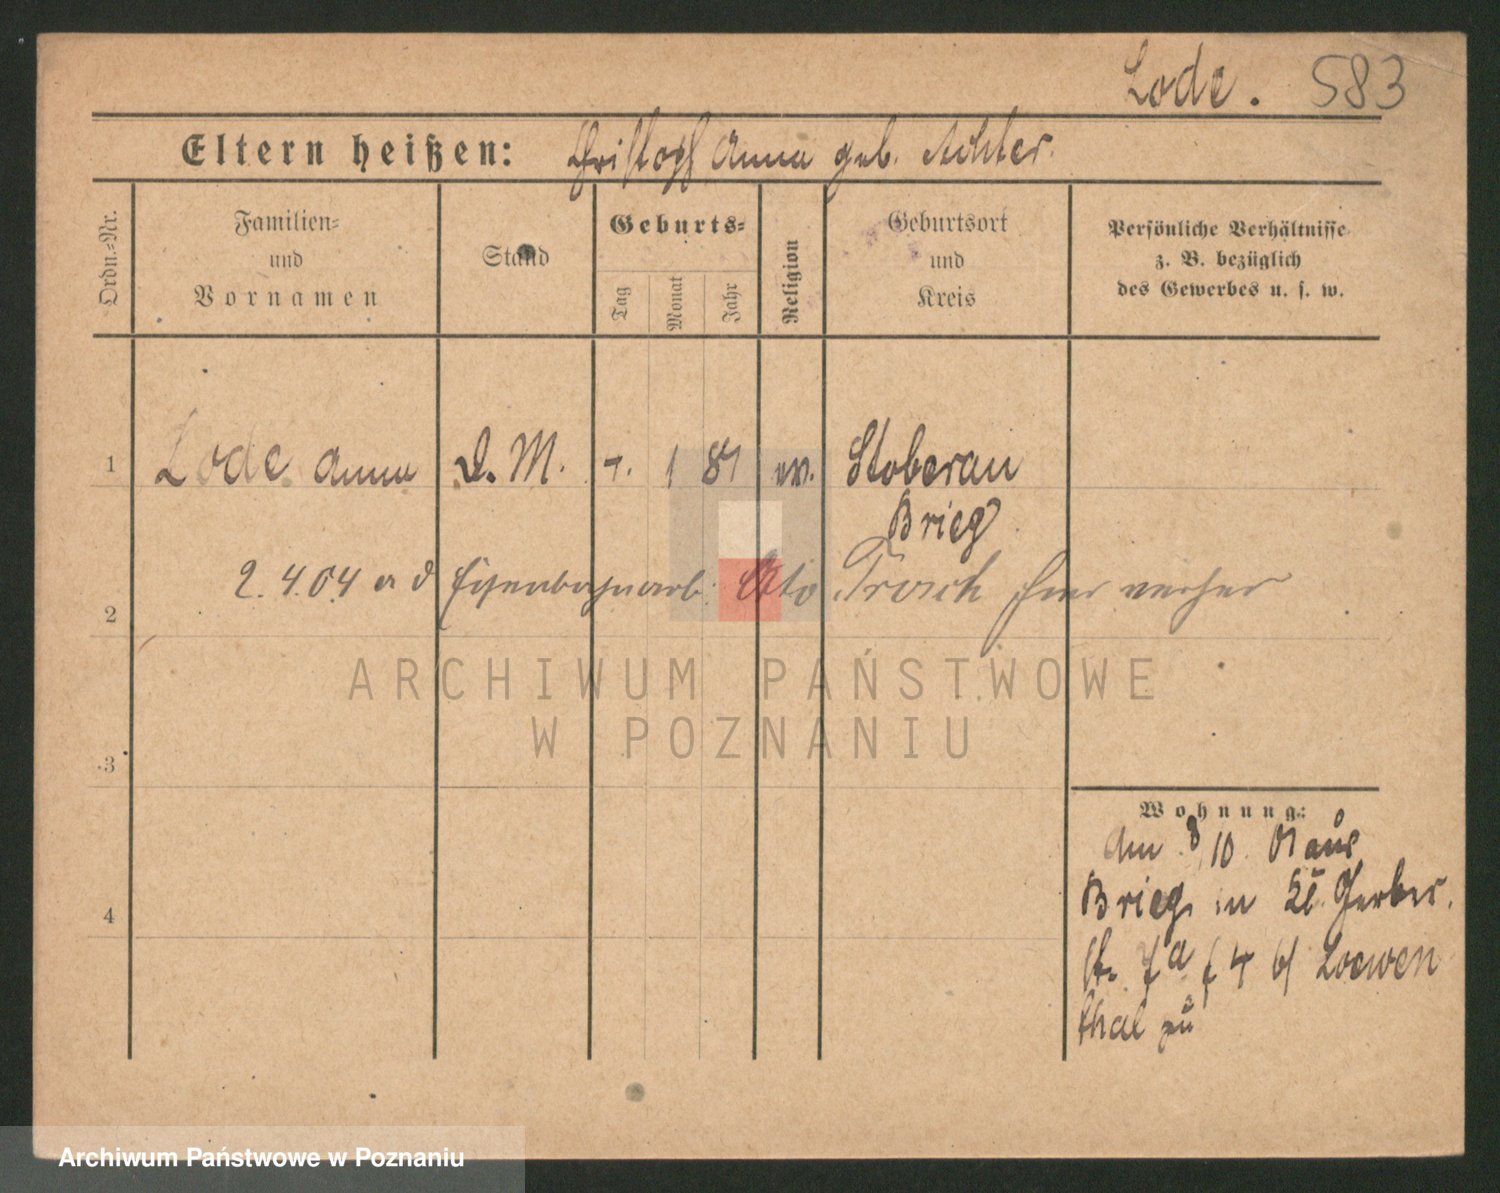 Lode. 583
Eltern heißen: Christoph Anna geb. Achter.
Ordn.=Nr.
Familien=
und
Vornamen
Stand
Geburts=
Tag
Monat
Jahr
Religion
Geburtsort
und
Kreis
Persönliche Verhältnisse
z. B. bezüglich
des Gewerbes u. s. w.
1 Lode Anna D. M. 7. 1 81 ev. Stoberau
Brieg
2 2.4.04 a d Eisenbahnarb. Otto hier
ARCHIWUM PAŃSTWOWE
W POZNANIU
3
Wohnung:
Am 8/10. 01 aus
Brieg in Kl. Gerber.
4
st. 7a 4 b/ Loewen
thal zu
Archiwum Państwowe w Poznaniu